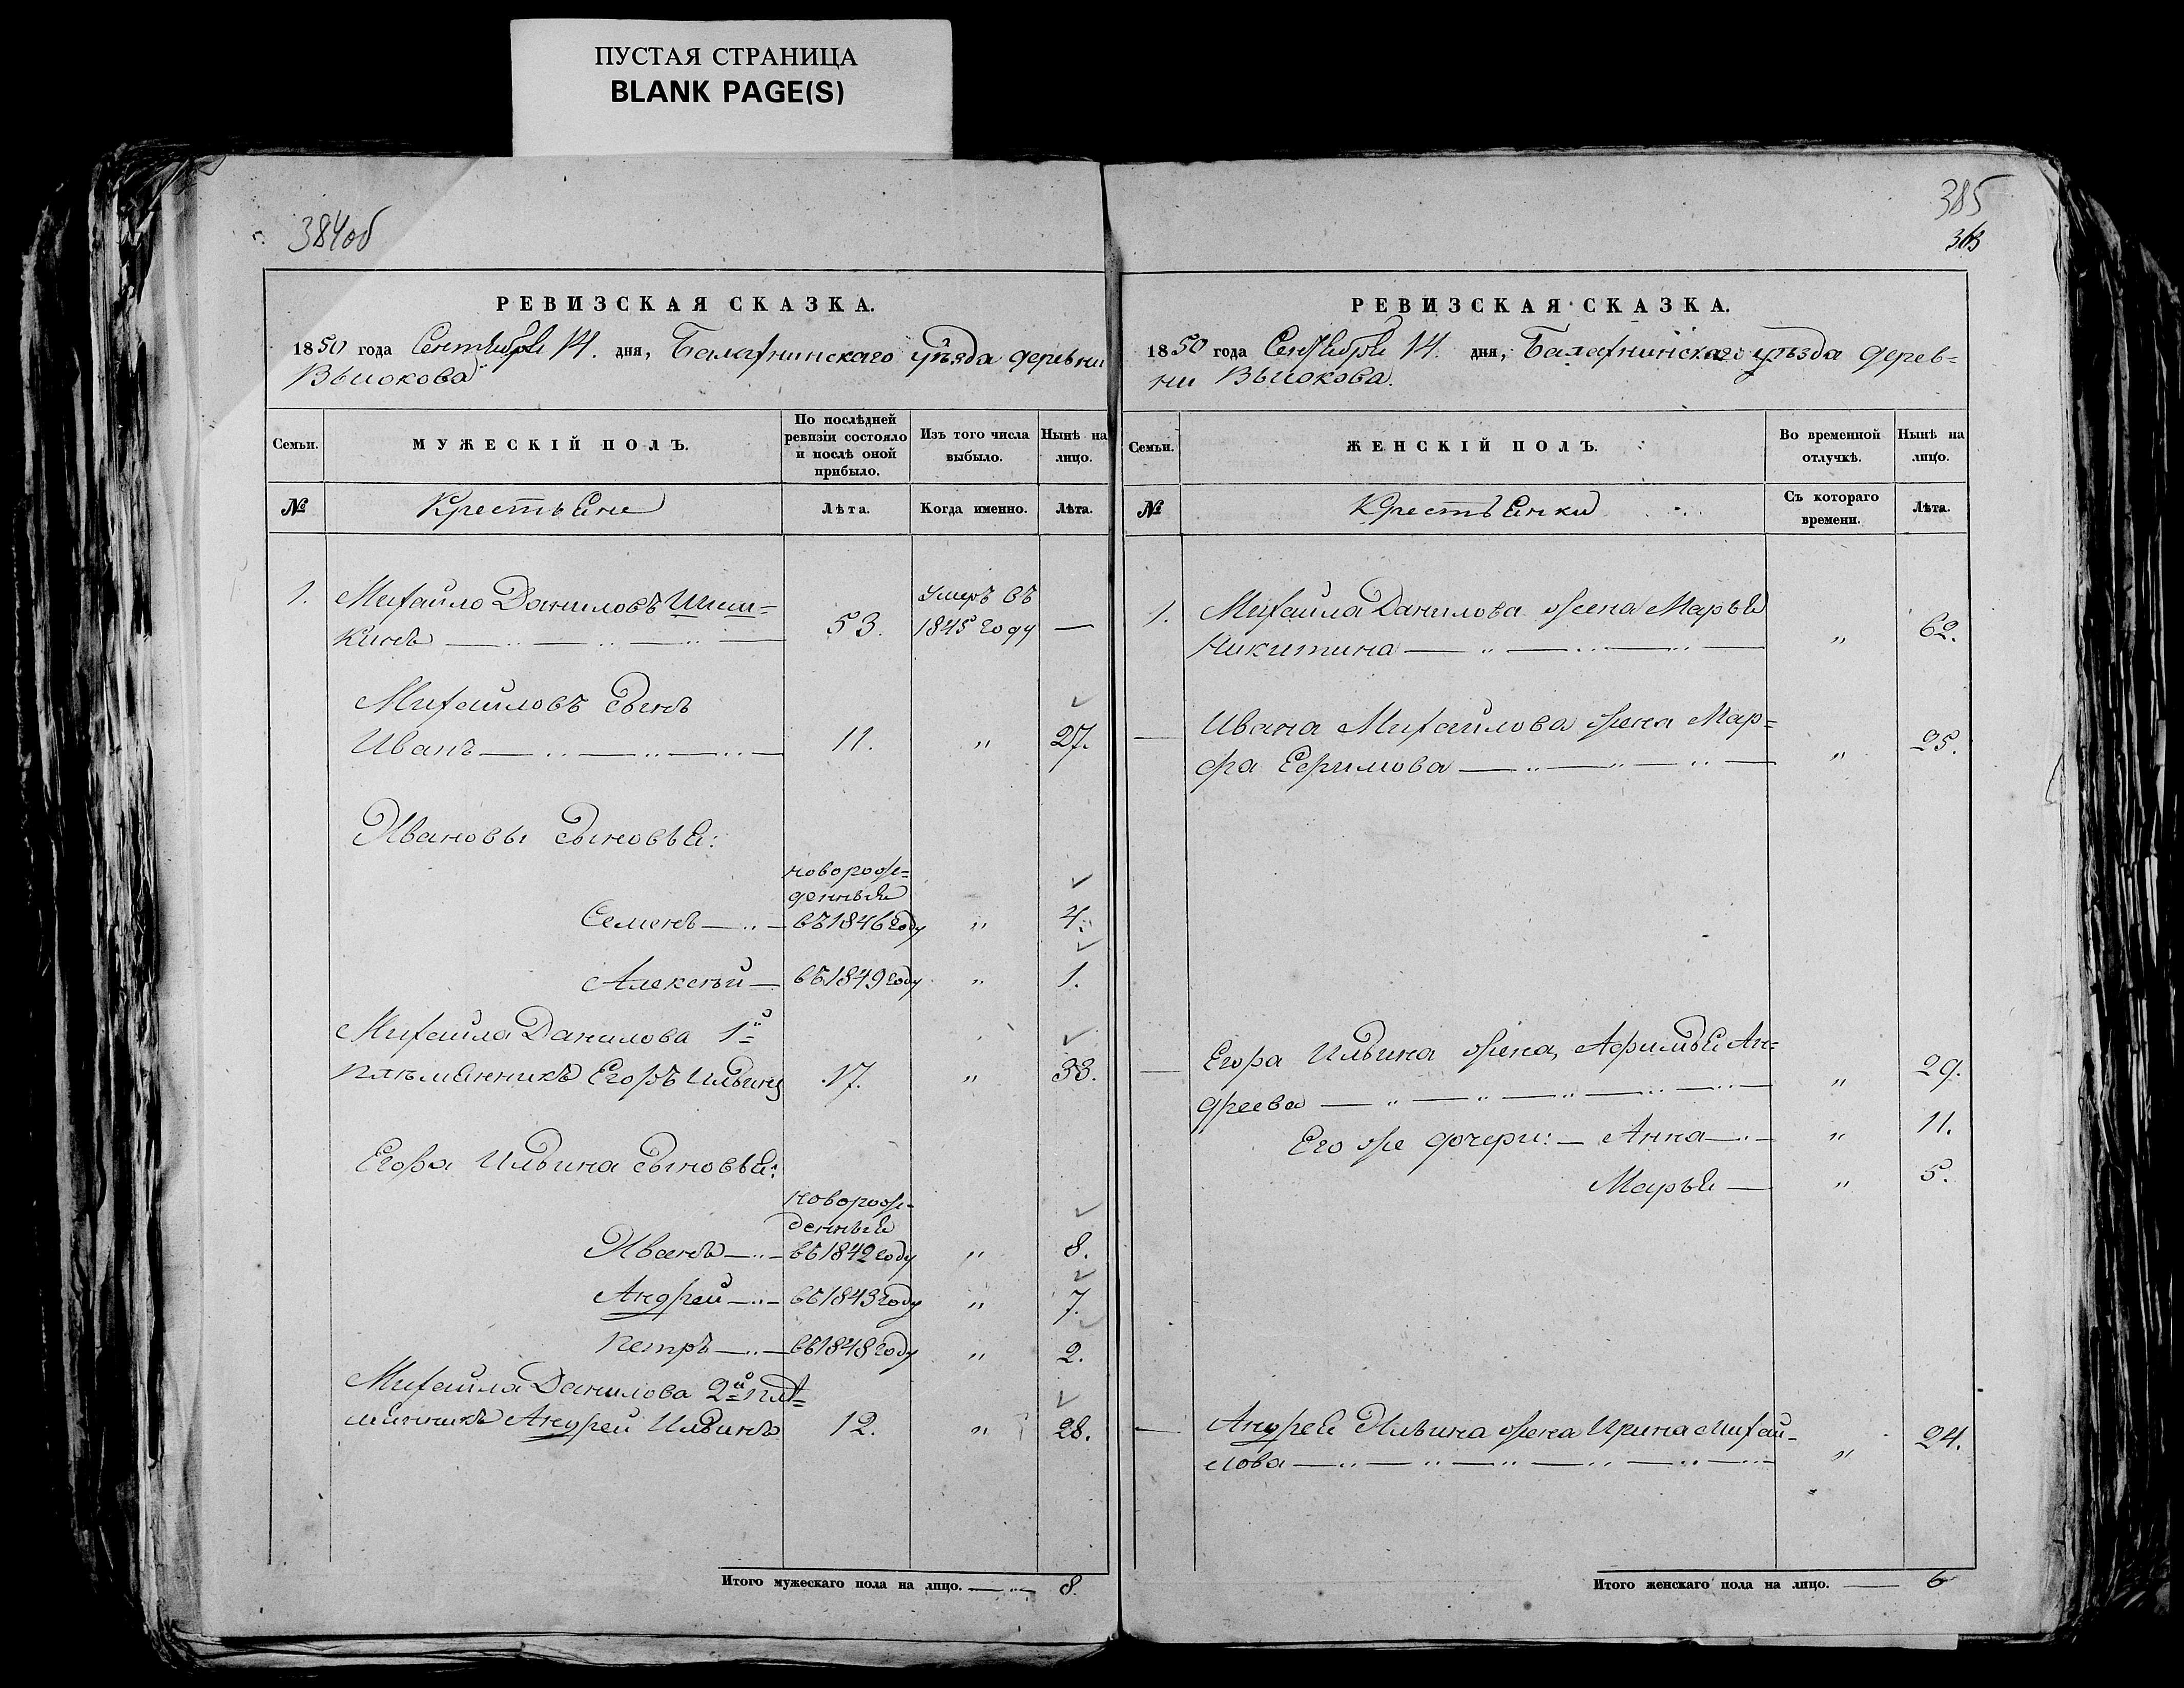 ПУСТАЯ СТРАНИЦА
BLANK PAGE(S)
384об
РЕВИЗСКАЯ СКАЗКА.
1850 года Сентября 14. дня, Балахнинскаго уѣзда деревни
Вьюкова
Семьи.
МУЖЕСКІЙ ПОЛЪ.
По послѣдней
ревизіи состояло
и послѣ оной
прибыло.
Изъ того числа
выбыло.
Нынѣ на
лицо.
№ Крестьяне Лѣта. Когда именно. Лѣта.
1. Михайло Даниловъ Шиш=
кинъ 53. Умеръ въ
1845 году —
Михайловъ сынъ
Иванъ 11. „ 27.
Ивановы сыновья:
новорож=
денныя
Семенъ въ 1846 году „ 4.
Алексѣй въ 1849 году „ 1.
Михайла Данилова 1й
племянникъ Егоръ Ильинъ 17. „ 33.
Егора Ильина сыновья:
новорож=
денныя
Иванъ въ 1842 году „ 8.
Андрей въ 1843 году „ 7.
Петръ въ 1848 году „ 2.
Михайла Данилова 2й пле=
мянникъ Андрей Ильинъ 12. „ 28.
Итого мужескаго пола на лицо. 8.
385
РЕВИЗСКАЯ СКАЗКА.
1850 года Сентября 14. дня, Балахнинскаго уѣзда дерев=
ни Вьюкова.
Семьи.
ЖЕНСКІЙ ПОЛЪ.
Во временной
отлучкѣ.
Нынѣ на
лицо.
№ Крестьянки Съ котораго
времени. Лѣта.
1. Михайла Данилова жена Марья
Никитина „ 62.
— Ивана Михайлова жена Мар=
фа Ефимова „ 25.
— Егора Ильина жена, Афимья Ан=
дреева „ 29.
Его же дочери: — Анна „ 11.
Марья — „ 5.
— Андрея Ильина жена Ирина Михай=
лова „ 24.
Итого женскаго пола на лицо. 6